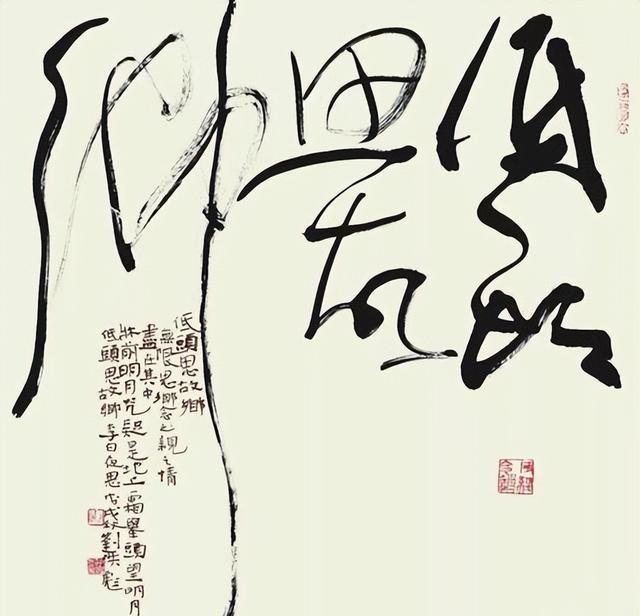 低頭
思故
鄉
低頭思故鄉
無限思鄉念親之情
盡在其中
牀前明月光疑是地上霜舉頭望明月
低頭思故鄉李白夜思戊戌秋劉洪彪